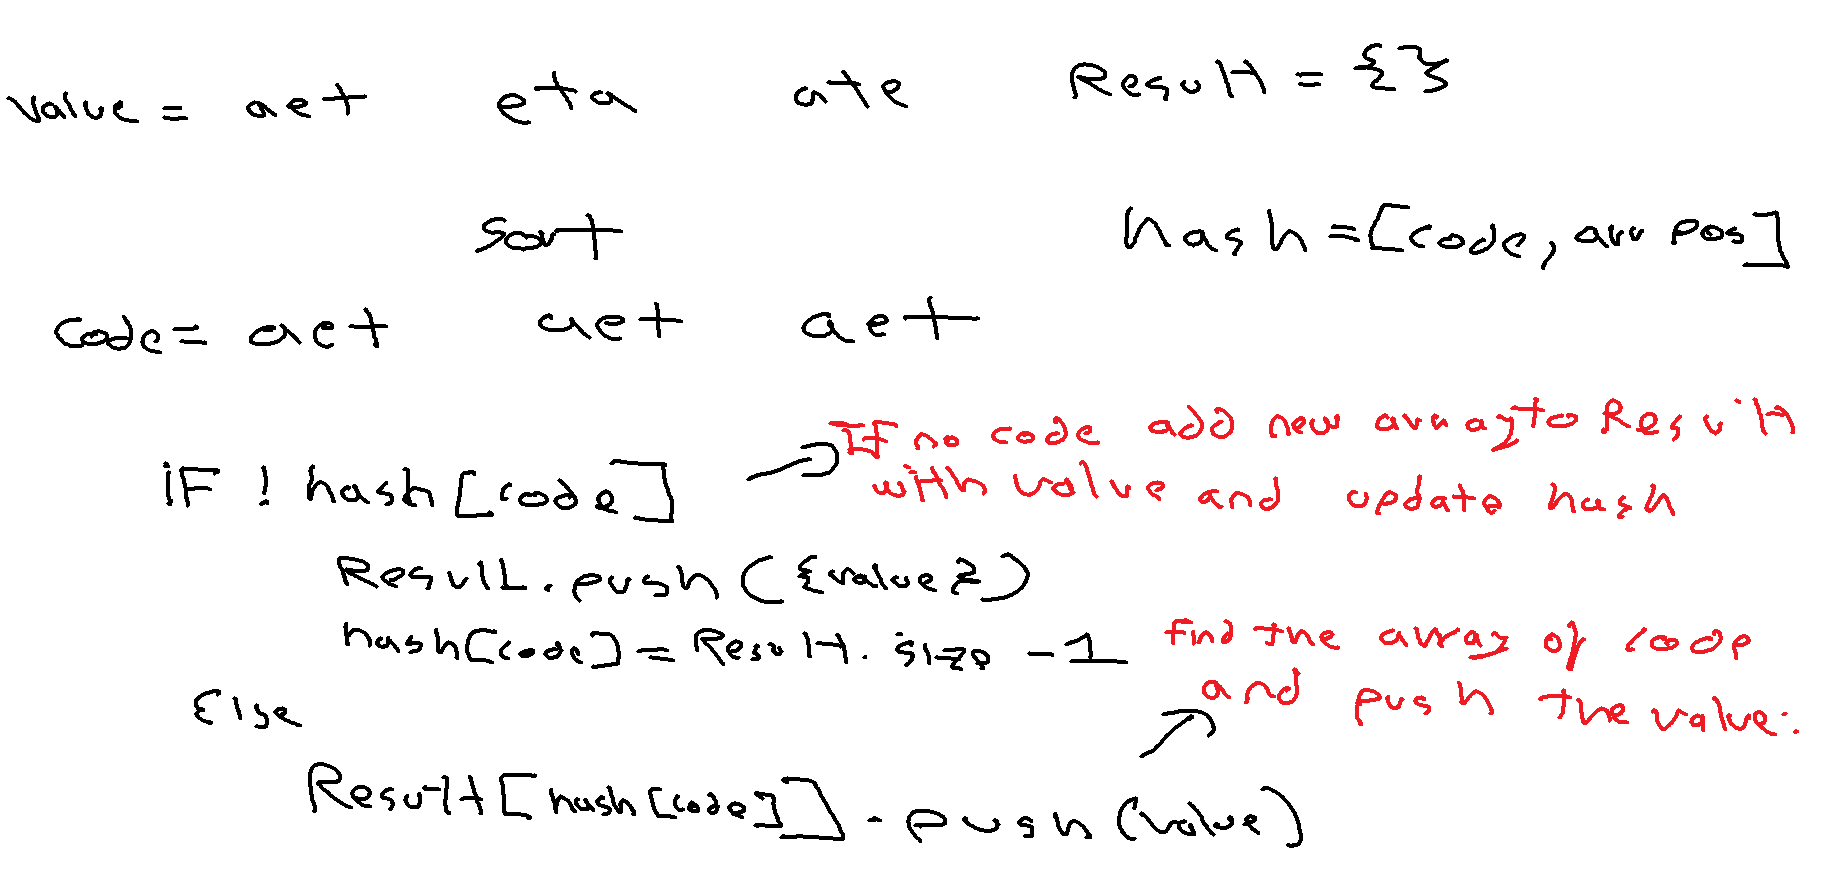 value = aet eta ate Result = {}
sort hash = [code, arr pos]
code = aet aet aet
If no code add new array to Result
with value and update hash
IF ! hash [code]
Result.push ({value})
hash[code] = Result.size - 1
Find the array of code
and push the value.
Else
Result [hash [code]].push (value)